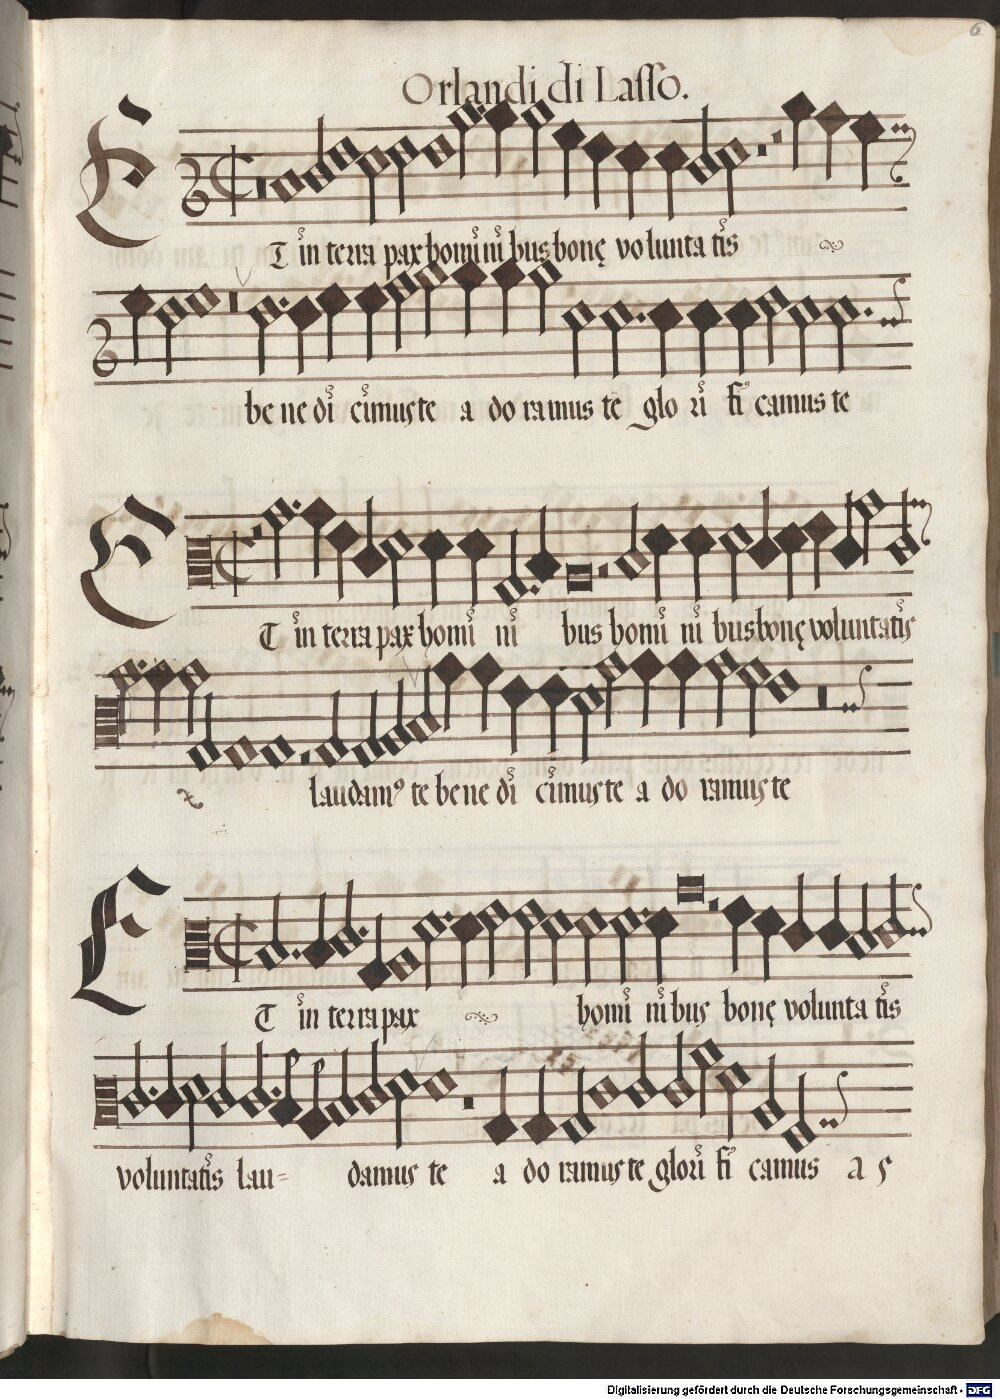 6
Orlandi di Lasso.
ET in terra pax homi ni bus bonę volunta tis
be ne di cimus te a do ramus te glo ri fi camus te
ET in terra pax homi ni bus homi ni bus bonę voluntatis
laudam⁹ te be ne di cimus te a do ramus te
ET in terra pax homi ni bus bonę volunta tis
voluntatis lau= damus te a do ramus te glori fi camus
Digitalisierung gefördert durch die Deutsche Forschungsgemeinschaft - DFG